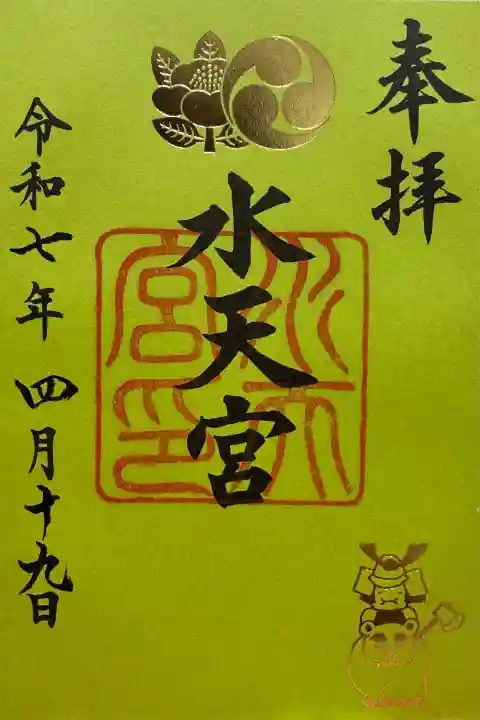 奉拝
水天宮
水天宮印
令和七年 四月十九日